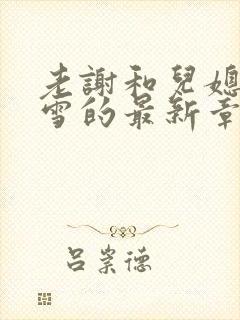 老謝和兒媳
雪的最新章
吕崇德